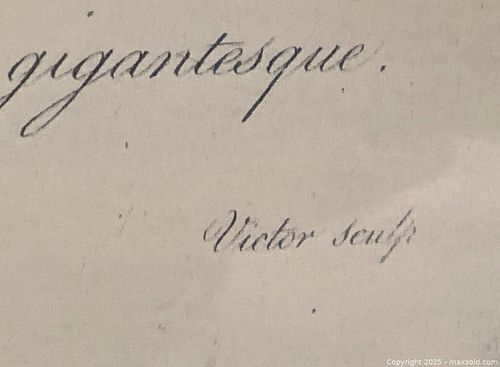 gigantesque.
Victor sculp
Copyright 2025 - maxsold.com